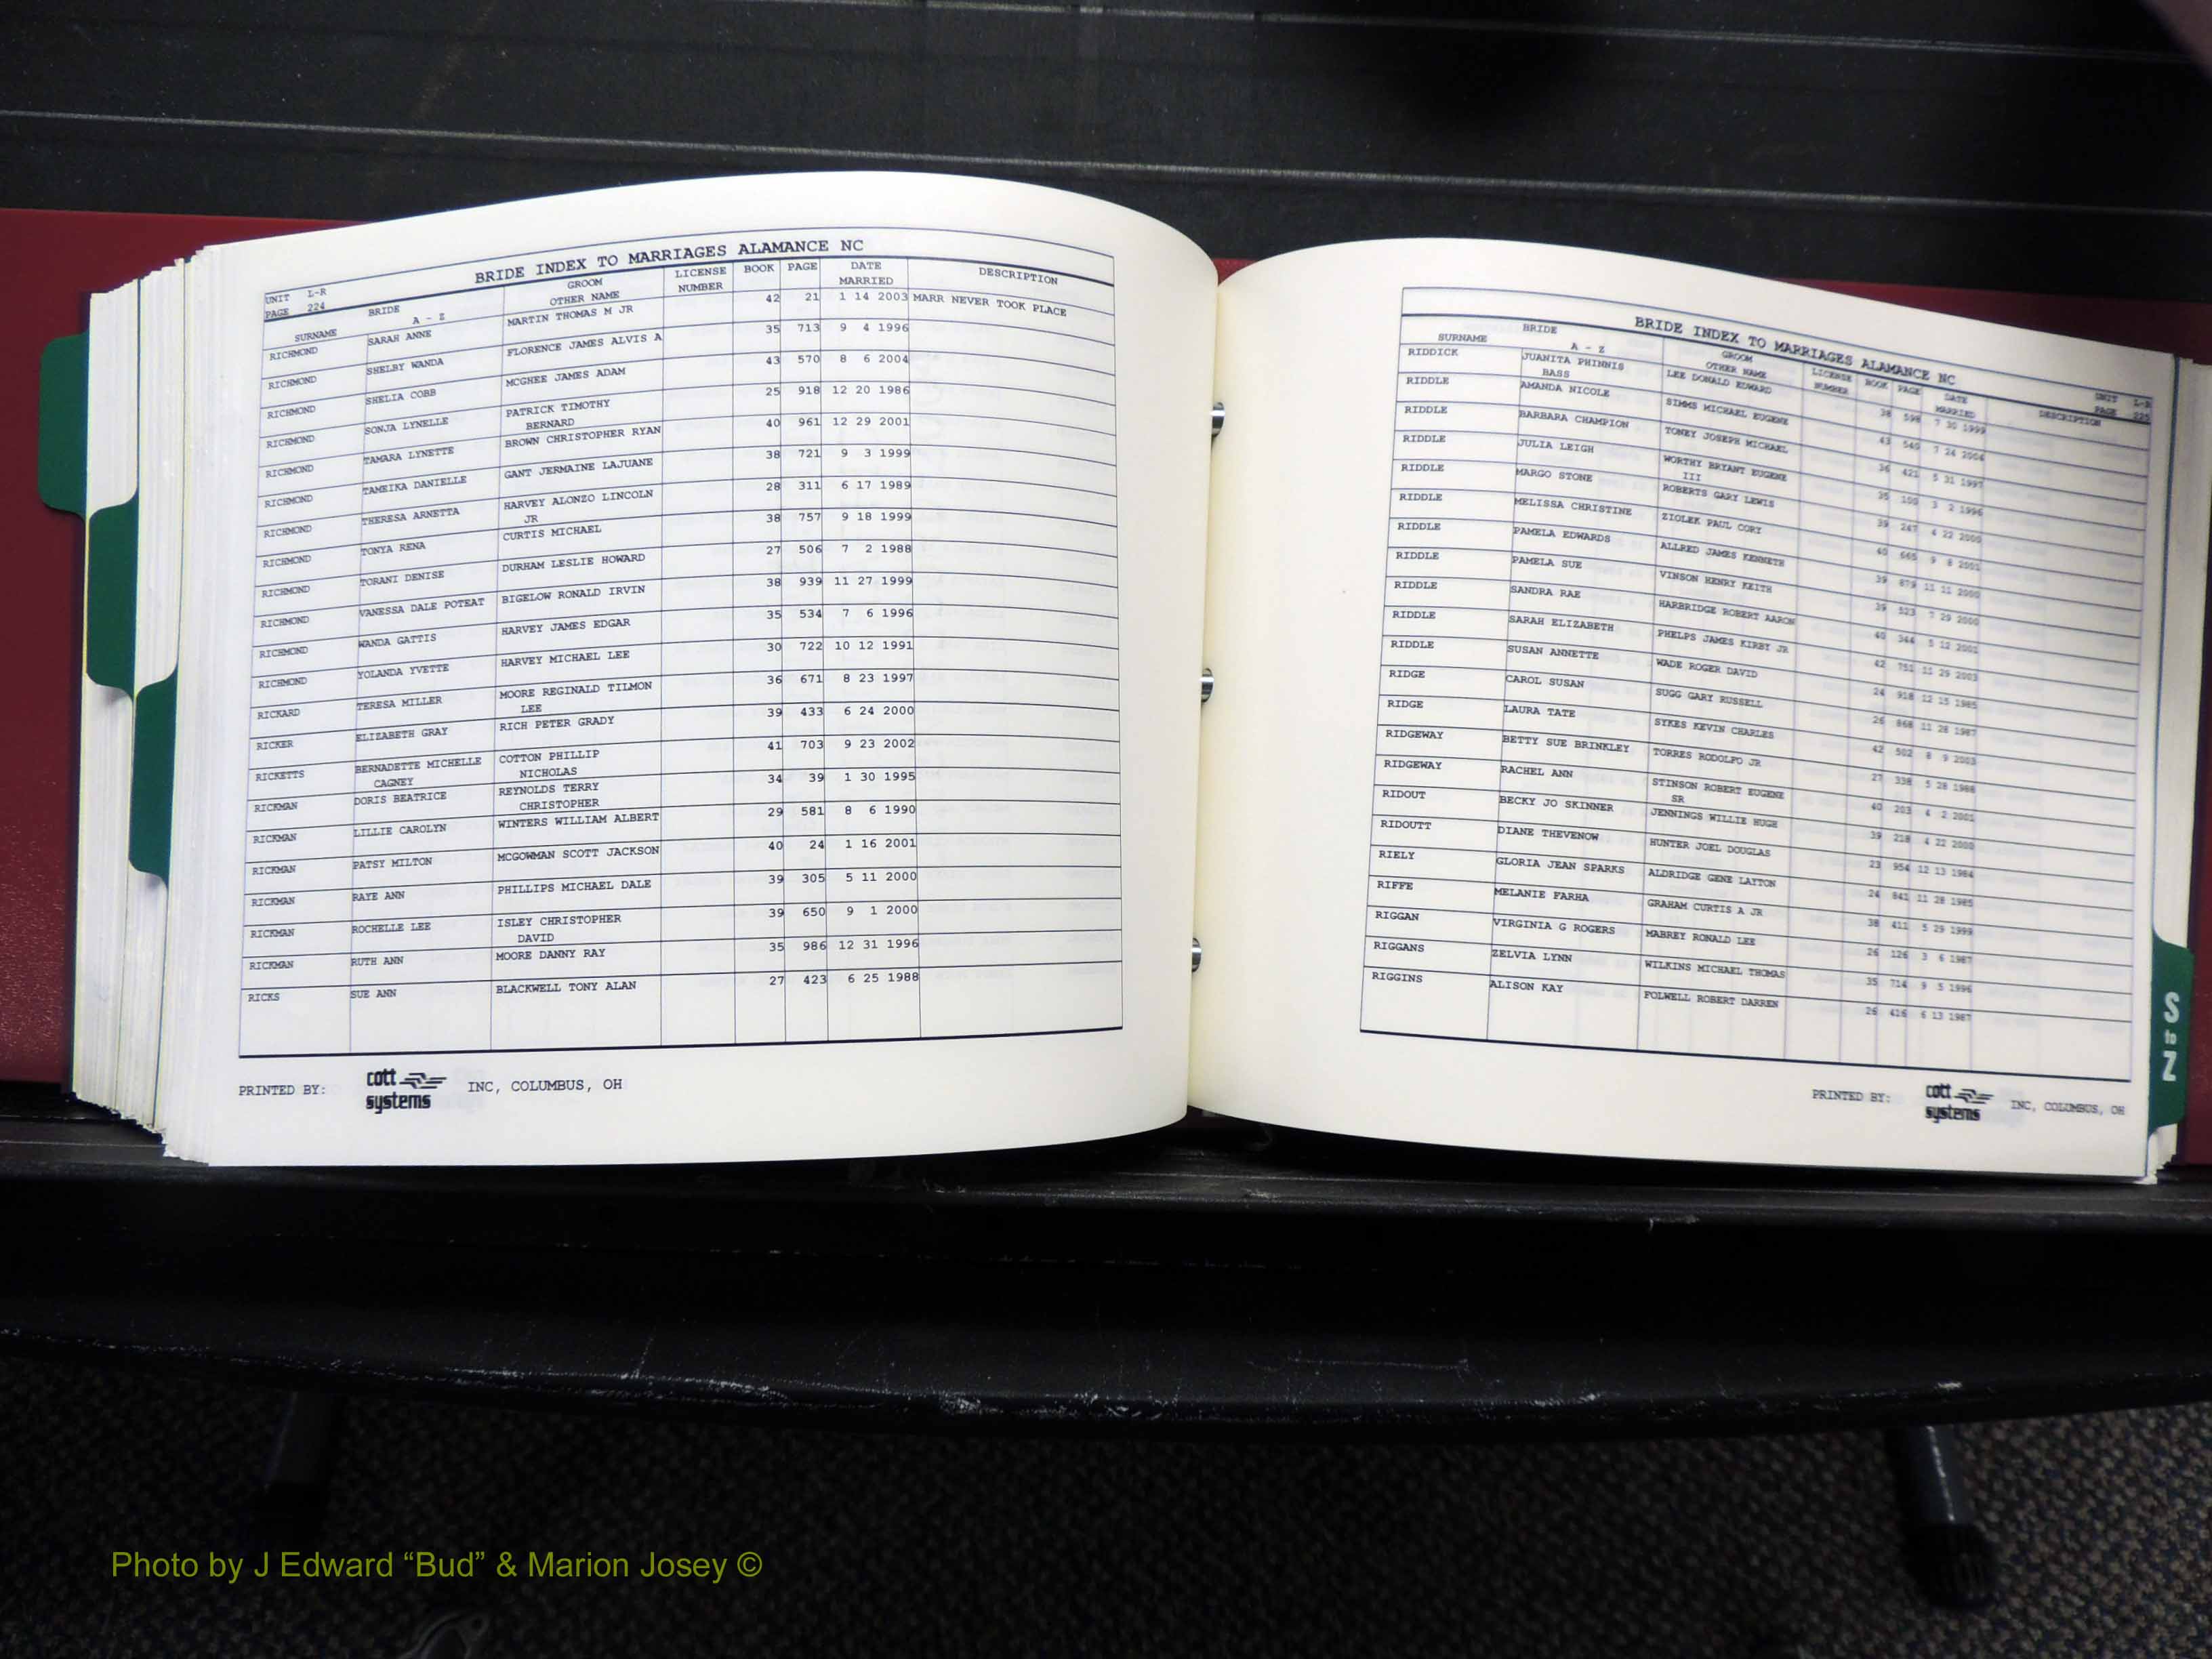 BRIDE INDEX TO MARRIAGES ALAMANCE NC
UNIT L-R
PAGE 224
SURNAME BRIDE A - Z GROOM OTHER NAME LICENSE NUMBER BOOK PAGE DATE MARRIED DESCRIPTION
RICHMOND SARAH ANNE MARTIN THOMAS M JR 42 21 1 14 2003 MARR NEVER TOOK PLACE
RICHMOND SHELBY WANDA FLORENCE JAMES ALVIS A 35 713 9 4 1996
RICHMOND SHELIA COBB MCGHEE JAMES ADAM 43 570 8 6 2004
RICHMOND SONJA LYNELLE PATRICK TIMOTHY BERNARD 25 918 12 20 1986
RICHMOND TAMARA LYNETTE BROWN CHRISTOPHER RYAN 40 961 12 29 2001
RICHMOND TAMEIKA DANIELLE GANT JERMAINE LAJUANE 38 721 9 3 1999
RICHMOND THERESA ARNETTA HARVEY ALONZO LINCOLN JR 28 311 6 17 1989
RICHMOND TONYA RENA CURTIS MICHAEL 38 757 9 18 1999
RICHMOND TORANI DENISE DURHAM LESLIE HOWARD 27 506 7 2 1988
RICHMOND VANESSA DALE POTEAT BIGELOW RONALD IRVIN 38 939 11 27 1999
RICHMOND WANDA GATTIS HARVEY JAMES EDGAR 35 534 7 6 1996
RICHMOND YOLANDA YVETTE HARVEY MICHAEL LEE 30 722 10 12 1991
RICKARD TERESA MILLER MOORE REGINALD TILMON LEE 36 671 8 23 1997
RICKER ELIZABETH GRAY RICH PETER GRADY 39 433 6 24 2000
RICKETTS BERNADETTE MICHELLE CAGNEY COTTON PHILLIP NICHOLAS 41 703 9 23 2002
RICKMAN DORIS BEATRICE REYNOLDS TERRY CHRISTOPHER 34 39 1 30 1995
RICKMAN LILLIE CAROLYN WINTERS WILLIAM ALBERT 29 581 8 6 1990
RICKMAN PATSY MILTON MCGOWMAN SCOTT JACKSON 40 24 1 16 2001
RICKMAN RAYE ANN PHILLIPS MICHAEL DALE 39 305 5 11 2000
RICKMAN ROCHELLE LEE ISLEY CHRISTOPHER DAVID 39 650 9 1 2000
RICKMAN RUTH ANN MOORE DANNY RAY 35 986 12 31 1996
RICKS SUE ANN BLACKWELL TONY ALAN 27 423 6 25 1988
PRINTED BY: cott systems INC, COLUMBUS, OH
BRIDE INDEX TO MARRIAGES ALAMANCE NC
UNIT L-R
PAGE 225
SURNAME BRIDE A - Z GROOM OTHER NAME LICENSE NUMBER BOOK PAGE DATE MARRIED DESCRIPTION
RIDDICK JUANITA PHINNIS BASS LEE DONALD EDWARD 38 598 7 30 1999
RIDDLE AMANDA NICOLE SIMMS MICHAEL EUGENE 43 540 7 24 2004
RIDDLE BARBARA CHAMPION TONEY JOSEPH MICHAEL 36 421 5 31 1997
RIDDLE JULIA LEIGH WORTHY BRYANT EUGENE III 35 100 3 2 1996
RIDDLE MARGO STONE ROBERTS GARY LEWIS 39 247 4 22 2000
RIDDLE MELISSA CHRISTINE ZIOLEK PAUL CORY 40 665 9 8 2001
RIDDLE PAMELA EDWARDS ALLRED JAMES KENNETH 39 879 11 11 2000
RIDDLE PAMELA SUE VINSON HENRY KEITH 39 523 7 29 2000
RIDDLE SANDRA RAE HARBRIDGE ROBERT AARON 40 344 5 12 2001
RIDDLE SARAH ELIZABETH PHELPS JAMES KIRBY JR 42 751 11 29 2003
RIDDLE SUSAN ANNETTE WADE ROGER DAVID 24 918 12 15 1985
RIDGE CAROL SUSAN SUGG GARY RUSSELL 26 868 11 28 1987
RIDGE LAURA TATE SYKES KEVIN CHARLES 42 502 8 9 2003
RIDGEWAY BETTY SUE BRINKLEY TORRES RODOLFO JR 27 338 5 28 1988
RIDGEWAY RACHEL ANN STINSON ROBERT EUGENE SR 40 203 4 2 2001
RIDOUT BECKY JO SKINNER JENNINGS WILLIE HUGE 39 218 4 22 2000
RIDOUTT DIANE THEVENOW HUNTER JOEL DOUGLAS 23 954 12 13 1984
RIELY GLORIA JEAN SPARKS ALDRIDGE GENE LAYTON 24 841 11 28 1985
RIFFE MELANIE FARHA GRAHAM CURTIS A JR 38 411 5 29 1999
RIGGAN VIRGINIA G ROGERS MABREY RONALD LEE 26 126 3 6 1987
RIGGANS ZELVIA LYNN WILKINS MICHAEL THOMAS 35 714 9 5 1996
RIGGINS ALISON KAY FOLWELL ROBERT DARREN 26 416 6 13 1987
PRINTED BY: cott systems INC, COLUMBUS, OH
S to Z
Photo by J Edward “Bud” & Marion Josey ©